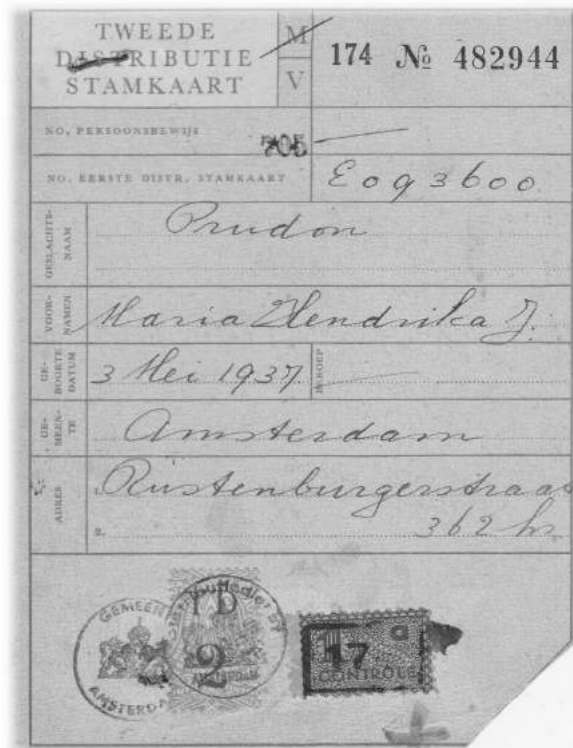 TWEEDE
DISTRIBUTIE
STAMKAART
M
V
174 № 482944
NO. PERSOONSBEWIJS
705
NO. EERSTE DISTR. STAMKAART
E093600
GESLACHTS-
NAAM
Prudon
VOOR-
NAMEN
Maria Hendrika J.
GE-
BOORTE
DATUM
3 Mei 1937
BEROEP
GE-
MEEN-
TE
Amsterdam
ADRES
1. Rustenburgerstraat
2. 362 hs.
GEMEENTE
AMSTERDAM
Distributiedienst
D
2
AMSTERDAM
a
17
CONTRÔLE